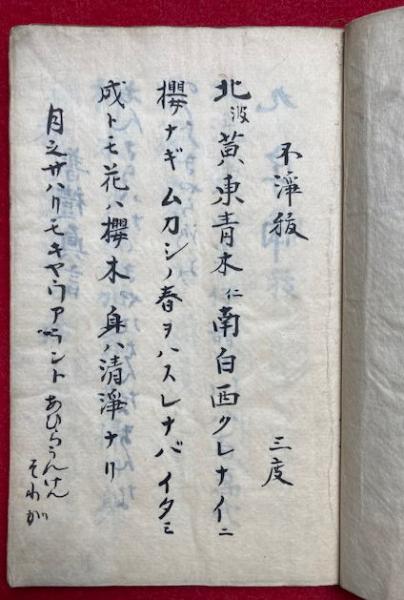 不淨祓 三度
北波黄東青木仁南白西クレナイニ
櫻ナギムカシノ春ヲハスレナバイタミ
成トモ花ハ櫻木身ハ清淨ナリ
月之サハリモキヤウアラント あひらうんけん
そわが